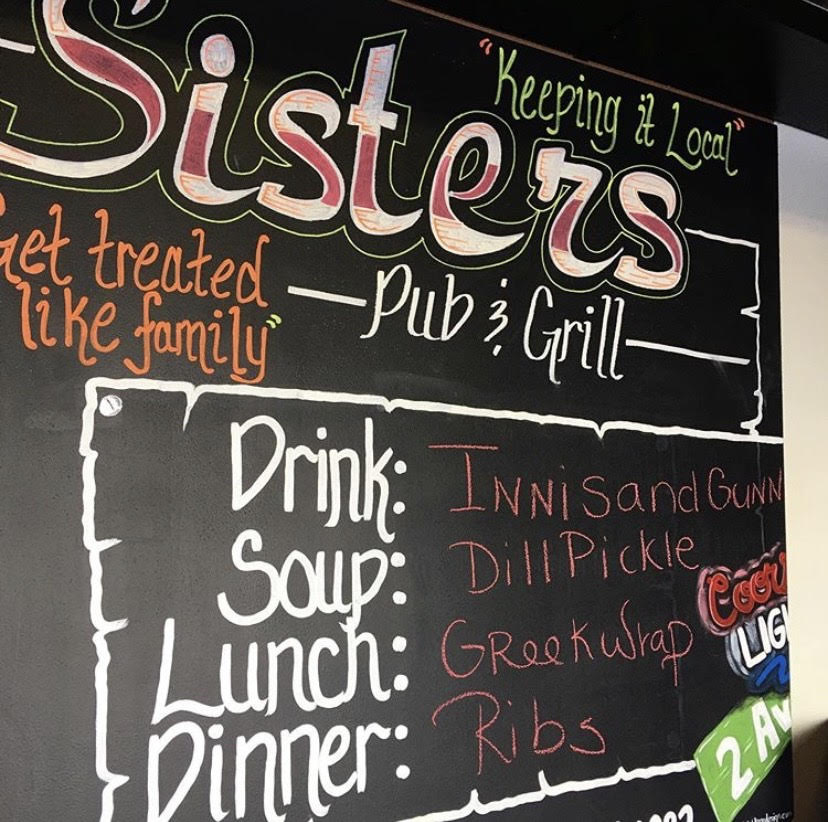 Sisters
"Keeping it Local"
Get treated
like family"
Pub & Grill
Drink: INNiS and GUNN
Soup: Dill Pickle
Lunch: GReek Wrap
Dinner: Ribs
Coors
LIG
2 Aw